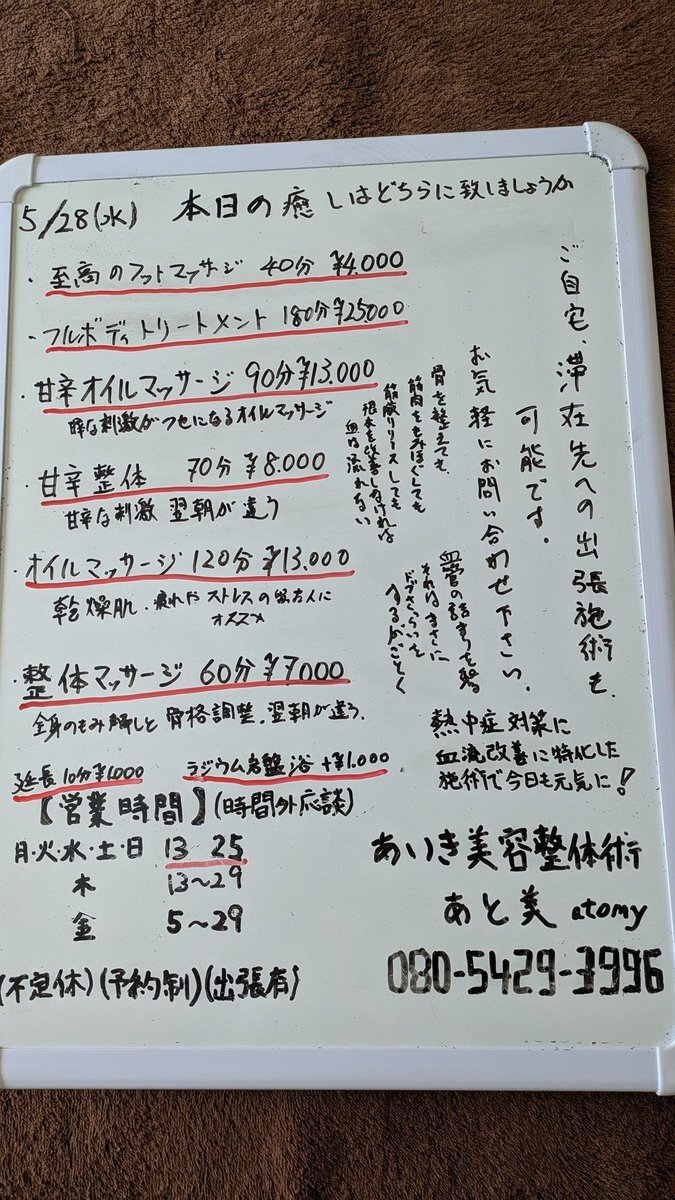 5/28(水) 本日の癒しはどちらに致しましょうか
・至高のフットマッサージ 40分 ¥4.000
・フルボディトリートメント 180分¥25.000
・甘辛オイルマッサージ 90分¥13.000
な刺激がクセになるオイルマッサージ
・甘辛整体 70分¥8.000
甘辛な刺激 翌朝が違う
・オイルマッサージ 120分¥13.000
乾燥肌・疲れやストレスの
オススメ
・整体マッサージ 60分¥7000
全身のもみ解しと骨格調整。翌朝が違う。
延長10分¥1000 ラジウム岩盤浴+¥1.000
【営業時間】(時間外応談)
月・火・水・土・日 13 25
木 13~29
金 5~29
(不定休)(予約制)(出張有)
ご自宅、滞在先への出張施術も
可能です。
お気軽にお問い合わせ下さい。
骨を整えても
筋肉をもみほぐしても
筋膜リリースしても
根本を改善しなければ
血は流れない
血管の詰まりを
それはまさに
ドブさらいを
するがごとく
熱中症対策に
血流改善に特化した
施術で今日も元気に!
あいき美容整体術
あと美 atomy
080-5429-3996